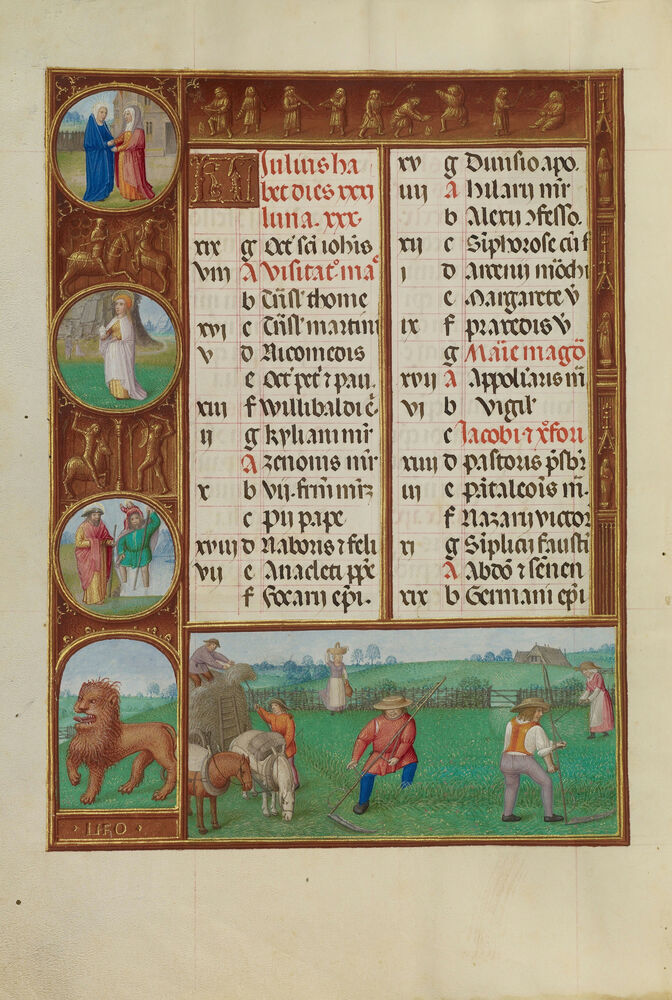 KL Iulius ha
bet dies xxxi
luna. xxx.
xix g Oct' sci iohis
viii A Visitat° ma°
b Trāsl' thome
xvi c Trāsl' martini
v d Nicomedis
e Oct' pet' ⁊ pau.
xiii f Willibaldi ē.
ii g kyliani mr̄
A Zenonis mr̄
x b Vii. frm̄ mr̄z
c Pii pape
xviii d Naboris ⁊ feli
vii e Anacleti ppe
f Focarii epi.
xv g Diuisio apo.
iiii A hilarii mr̄
b Alexii ɔfesso.
xii c Siphorose cū f
i d Arcenii mōchi
e Margarete v̄
ix f praxedis v̄
g Marie magd
xvii A Appollīaris m̄
vi b Vigil'
c Iacobi ⁊ xp̄fori
xiiii d pastoris p̄sbr̄
iii e pātaleōis m̄.
f Nazarii victor
xi g Siplicii fausti
A Abdō ⁊ sēnen
xix b Germani epi
LEO